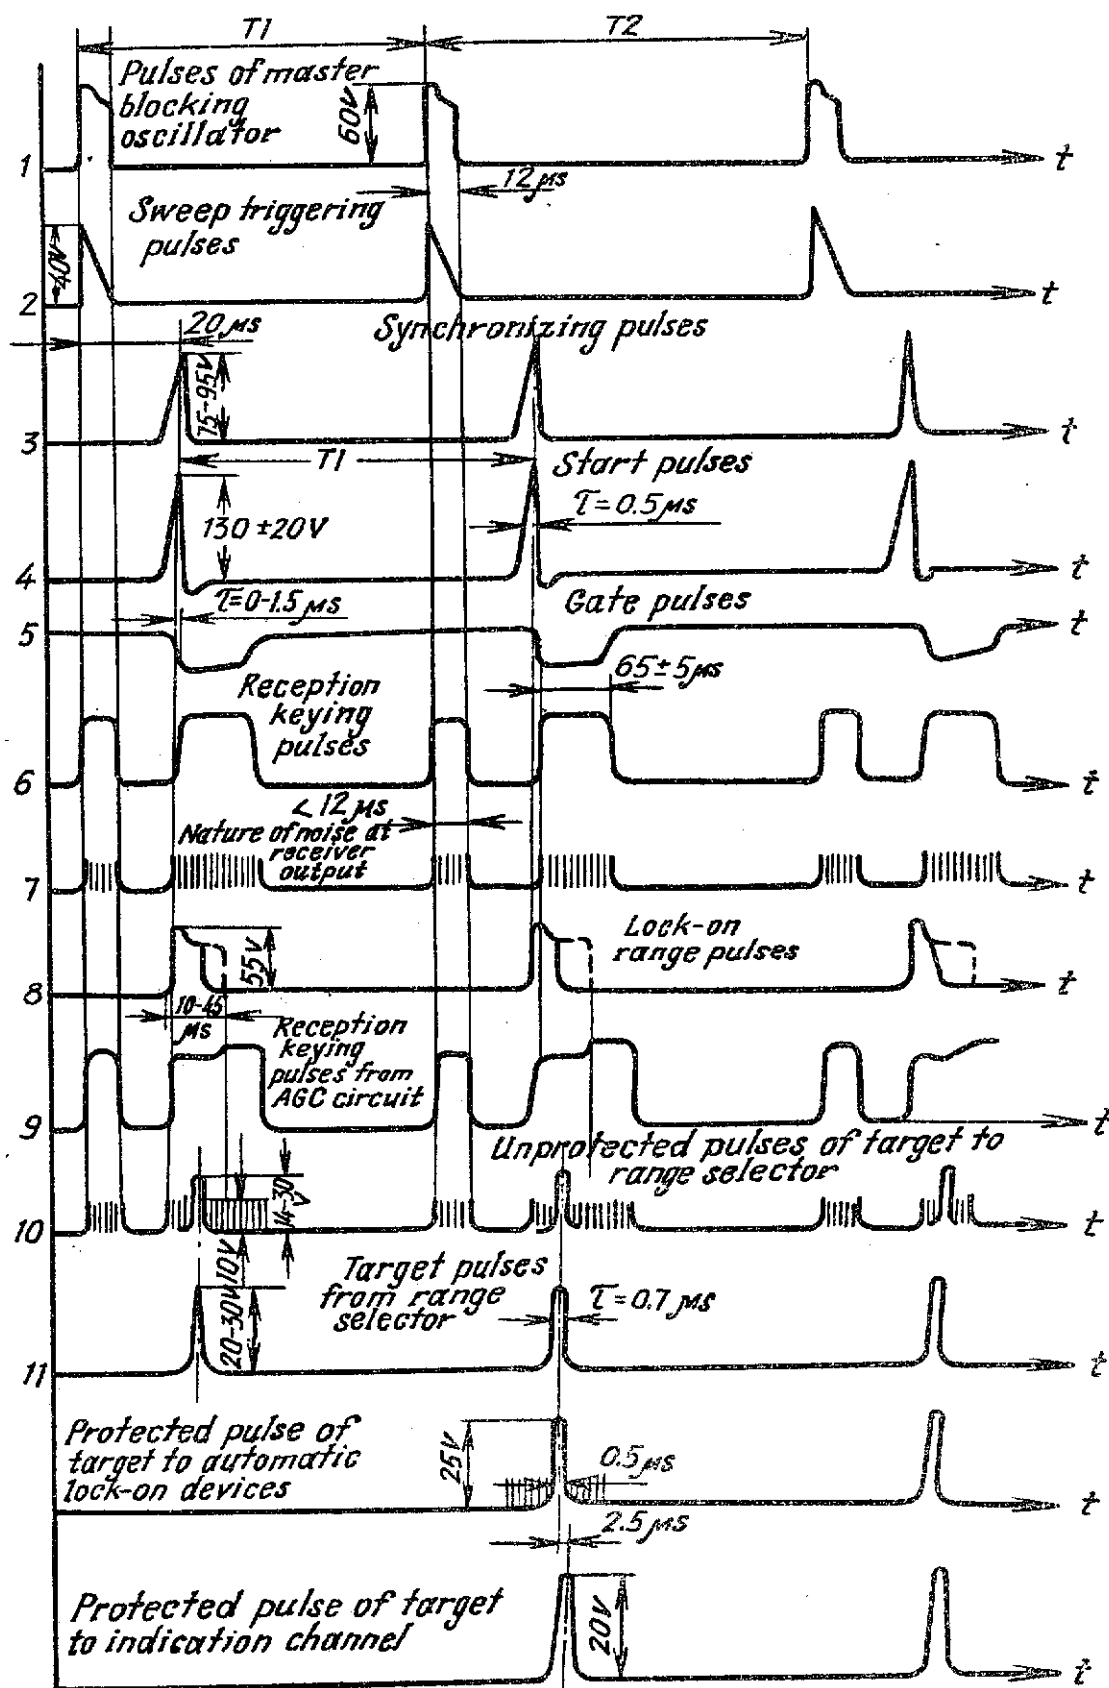 T1
T2
Pulses of master
blocking
oscillator
60V
1
t
12 μs
Sweep triggering
pulses
40V
2
t
20 μs
Synchronizing pulses
75-95V
3
t
T1
Start pulses
130 ±20V
τ=0.5 μs
4
t
τ=0-1.5 μs
Gate pulses
5
t
65±5 μs
Reception
keying
pulses
6
t
< 12 μs
Nature of noise at
receiver
output
7
t
Lock-on
range pulses
55V
8
t
10-45
μs
Reception
keying
pulses from
AGC circuit
9
t
Unprotected pulses of target to
range selector
14-30
V
10
t
10V
Target pulses
from range
selector
20-30V
τ=0.7 μs
11
t
Protected pulse of
target to automatic
lock-on devices
25V
0.5 μs
t
2.5 μs
Protected pulse of target
to indication channel
20V
t